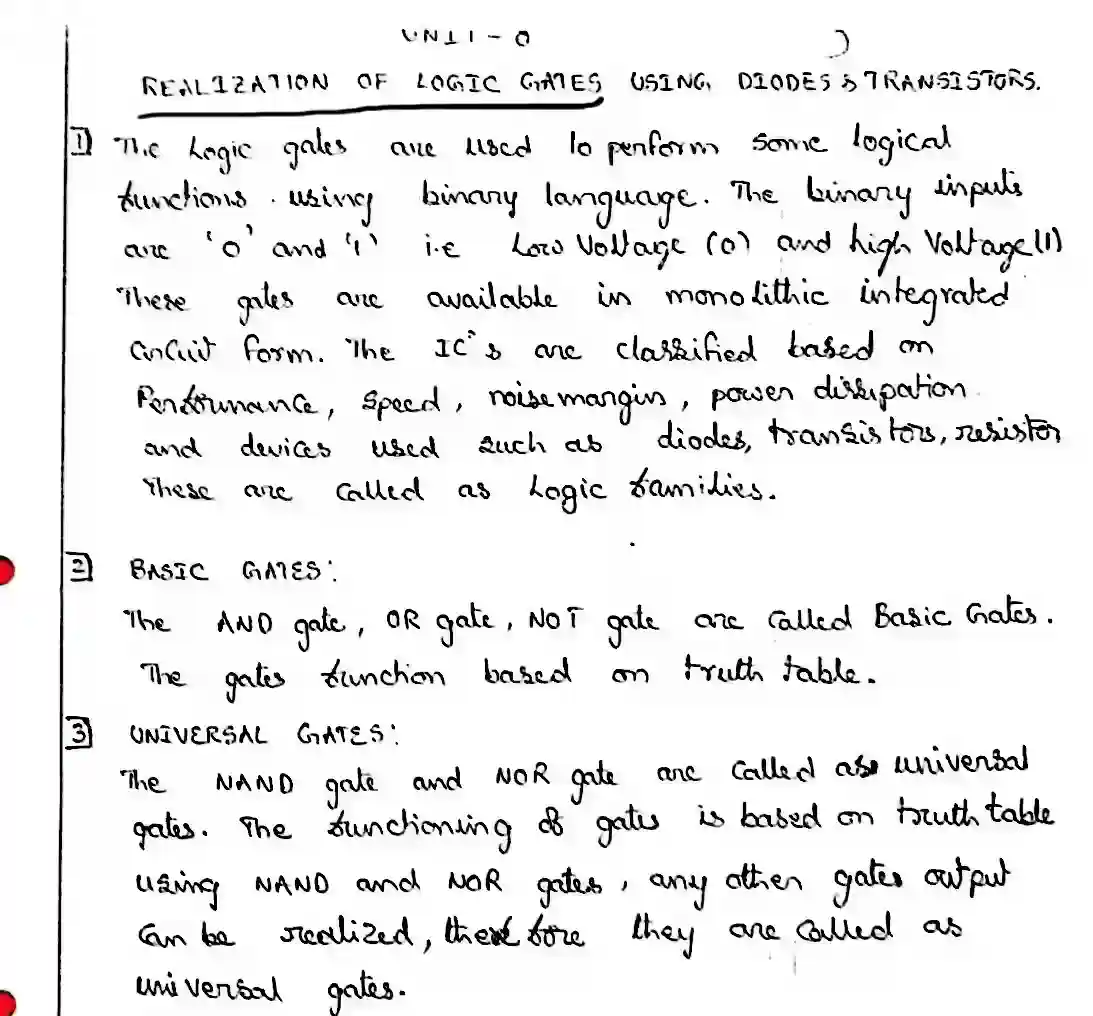 UNIT-0
REALIZATION OF LOGIC GATES USING DIODES & TRANSISTORS.
1 The Logic gates are used to perform some logical
functions. using binary language. The binary inputs
are '0' and '1' i.e Low Voltage (0) and high Voltage(1)
These gates are available in monolithic integrated
circuit form. The IC's are classified based on
Performance, speed, noise margin, power dissipation
and devices used such as diodes, transistors, resistor
These are called as Logic families.
2 BASIC GATES:
The AND gate, OR gate, NOT gate are called Basic Gates.
The gates function based on truth table.
3 UNIVERSAL GATES:
The NAND gate and NOR gate are called as universal
gates. The functioning of gates is based on truth table
using NAND and NOR gates, any other gates output
can be realized, therefore they are called as
universal gates.